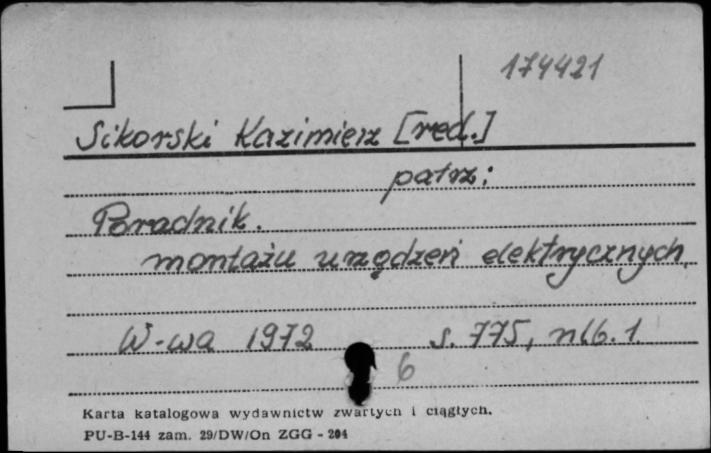 174421
Sikorski Kazimierz [red.]
patrz:
Poradnik.
montażu urządzeń elektrycznych.
W-wa 1972 s. 775, nlb. 1
6
Karta katalogowa wydawnictw zwartych i ciągłych.
PU-B-144 zam. 29/DW/On ZGG - 204